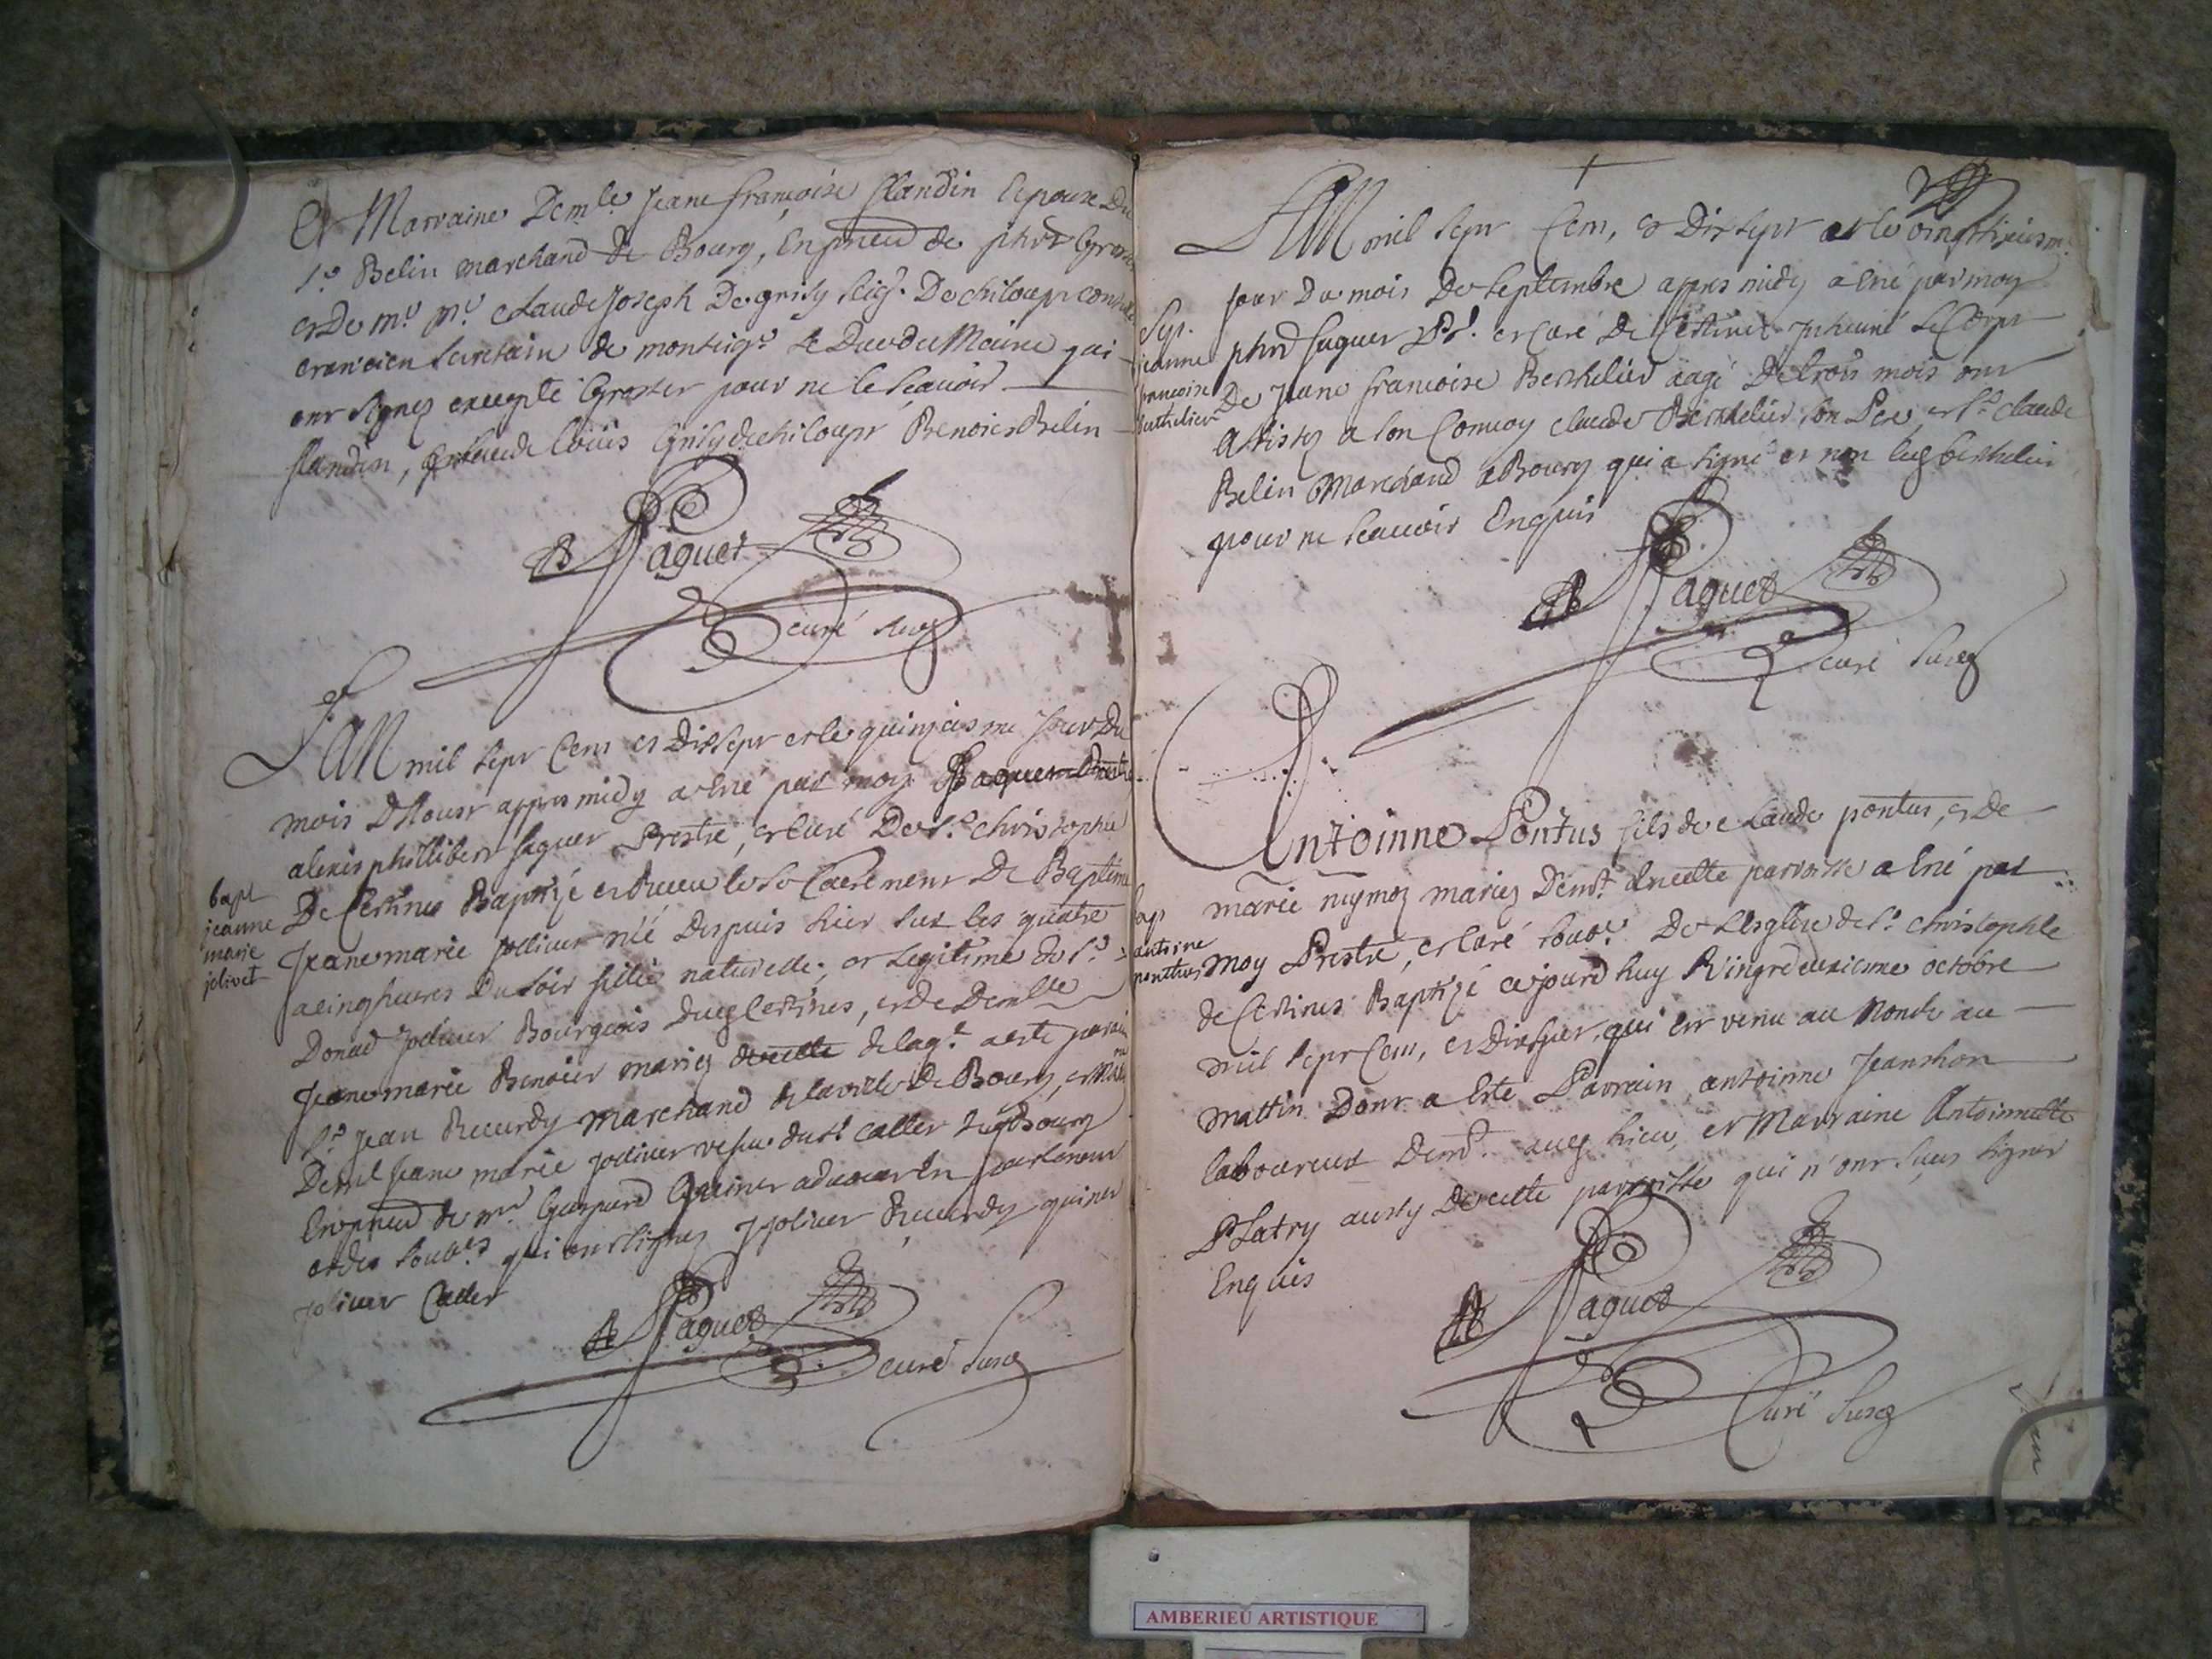 Et Marraine Demle Jeane françoise flandin Epouse Du
Sr Belin marchand de Bourg, En pñce de
et De mr mr claude Joseph De grily seigr De chiloup
et ancien secretaire de monseigr Le Duc du Maine qui
ont signez excepté pour ne le scauoir
flandin, claude Loüis Grily de chiloup Benoist Belin
Paguet
curé susd
L'AN mil sept Cent et Dix sept et le quinziesme Jour Du
mois D'Aoust appres midy a Eté par moy
alexis philibert paguet Prestre, et curé De St christophle
De Certines Baptizé et Receu le St Sacrement De Baptême
Jeane marie Joliuet née Depuis hier sur les quatre
a cinq heures Du soir fille naturelle, et Legitime du Sr
Donad Joliuet Bourgeois dud Certines, et De Demlle
Jeane marie Benoist mariez a esté parain
Sr Jean Recurdy marchand de la ville De Bourg, et
Demlle Jeane marie Joliuet vefue du Sr Caller dud Bourg
En pñce de mr Gaspard Quinet aduocat En parlement
et des soubes qui ont signez Joliuet Recurdy quinet
Joliuet Caller
Paguet
curé susd
bapt
jeanne
marie
jolivet
L'AN mil sept Cent, et Dix sept et le vingt
jour Du mois De septembre appres midy a Eté par moy
phrt paguet Pr. et Curé De Certines Inhumé Le Corps
De Jeane francoise Berthelier aagé De trois mois ont
assistez a son Conuoy claude Berthelier son Pere, et Sr claude
Belin Marchand a Bourg qui a signé et non led berthelier
pour ne scauoir Enquis
Paguet
curé susd
Sep.
jeanne
francoise
berthelier
Antoinne Pontus fils de claude pontus, et De
marie mariez demt de cette parroisse a Eté par
moy Prestre, et Curé soubé De L'Esglise de St christophle
de Certines Baptizé ce jourd'huy Vingt deuxiesme octobre
mil sept Cent, et Dix sept, qui est venu au Monde au
mattin Dont a Esté Parrain antoinne Jeanthon
laboureur Demt aud lieu, et Marraine Antoinnette
Platry aussy De cette parroisse qui n'ont sçus signer
Enquis
Paguet
Curé susd
bap
antoine
ponthus
AMBERIEU ARTISTIQUE